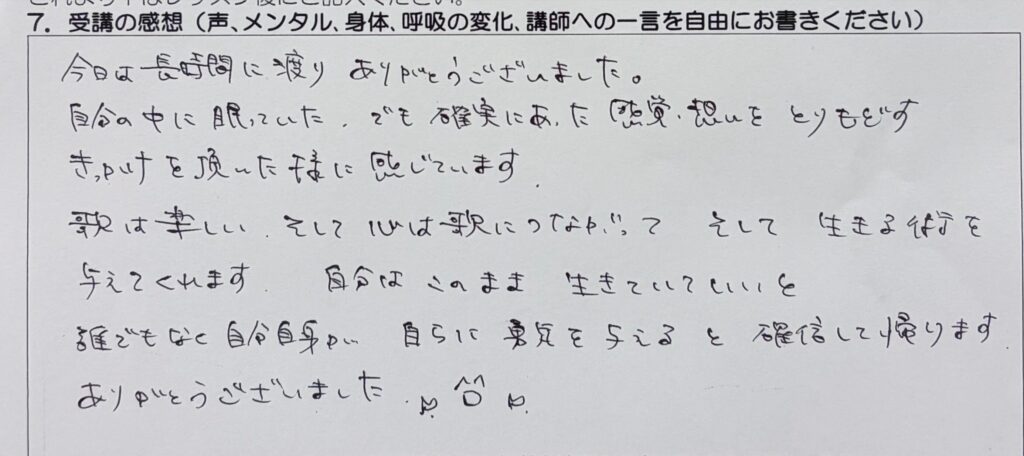 これより下はレッスン後にご記入ください。
7. 受講の感想（声、メンタル、身体、呼吸の変化、講師への一言を自由にお書きください）
今日は長時間に渡り ありがとうございました。
自分の中に眠っていた、でも確実にあった感覚・想いをとりもどす
きっかけを頂いた様に感じています。
歌は楽しい、そして心は歌につながって そして 生きる を
与えてくれます 自分は このまま 生きていていいと
誰でもなく自分自身が 自らに勇気を与えると 確信して帰ります
ありがとうございました